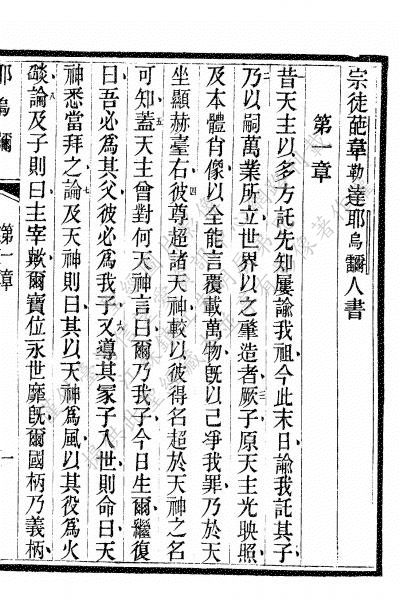 宗徒葩韋勒達耶烏爾人書
第一章
昔天主以多方託先知屢諭我祖今此末日諭我託其子
乃以嗣萬業所立世界以之肇造者厥子原天主光映照
及本體肖像以全能言覆載萬物旣以己凈我罪乃於天
坐顯赫臺右彼尊超諸天神較以彼得名超於天神之名
可知蓋天主曾對何天神言曰爾乃我子今日生爾繼復
曰吾必為其父彼必為我子又導其冢子入世則命曰天
神悉當拜之論及天神則曰其以天神為風以其役為火
燄論及子則曰主宰歟爾寶位永世靡旣爾國柄乃義柄
第一章
一